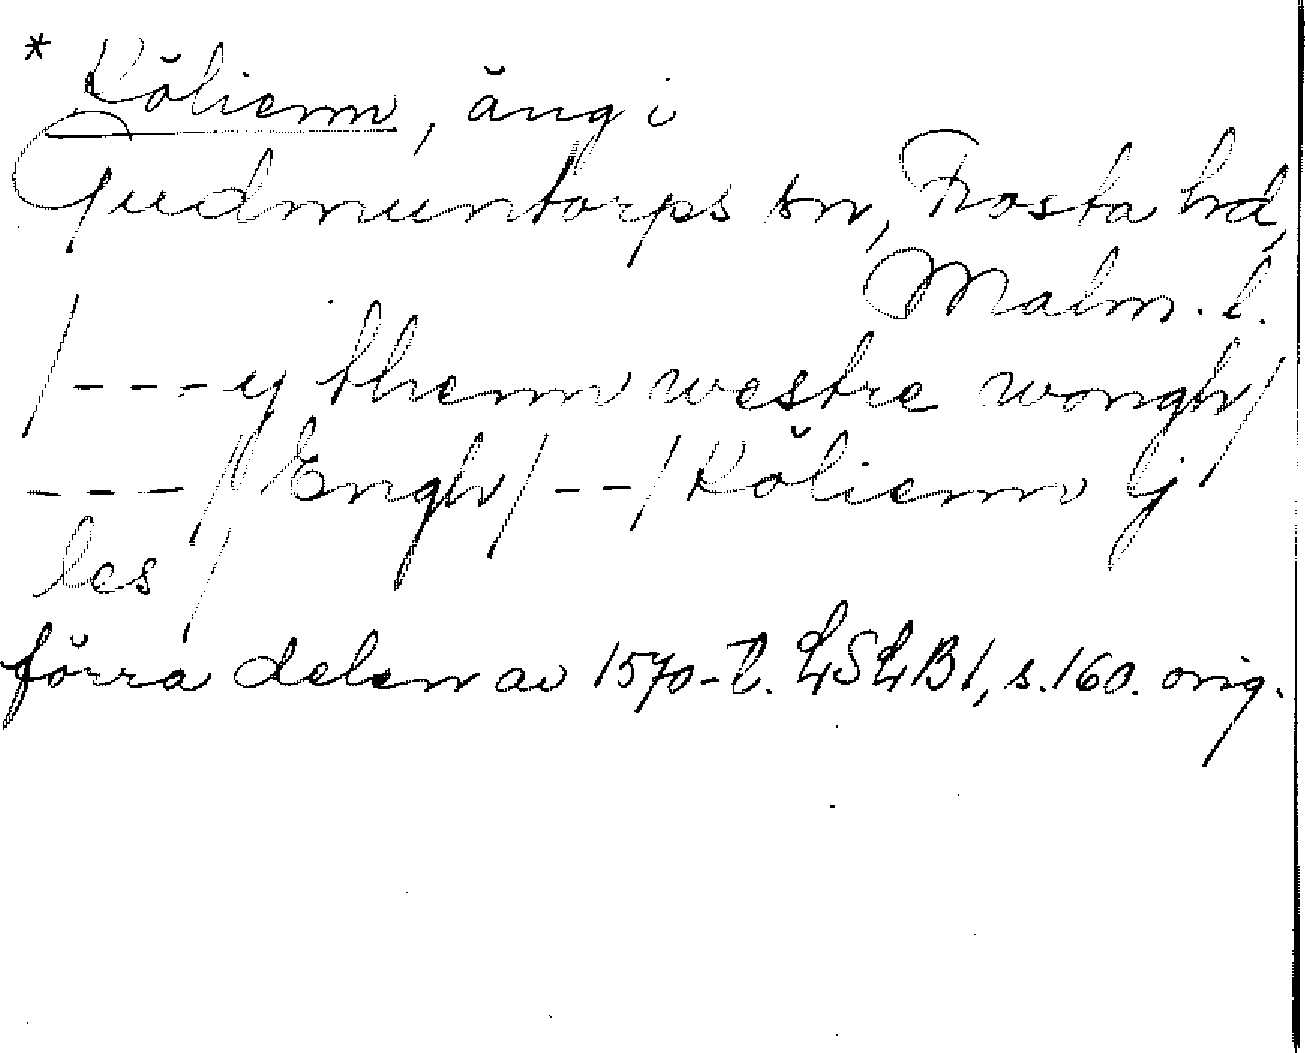 * Kölienn, äng i
Gudmuntorps sn, Frosta hd,
Malm. l.
/---y thenn westre wongh/
---/ Engh/--/ Kölienn ij
les /
förra delen av 1570-t. LSLB1, s.160. orig.